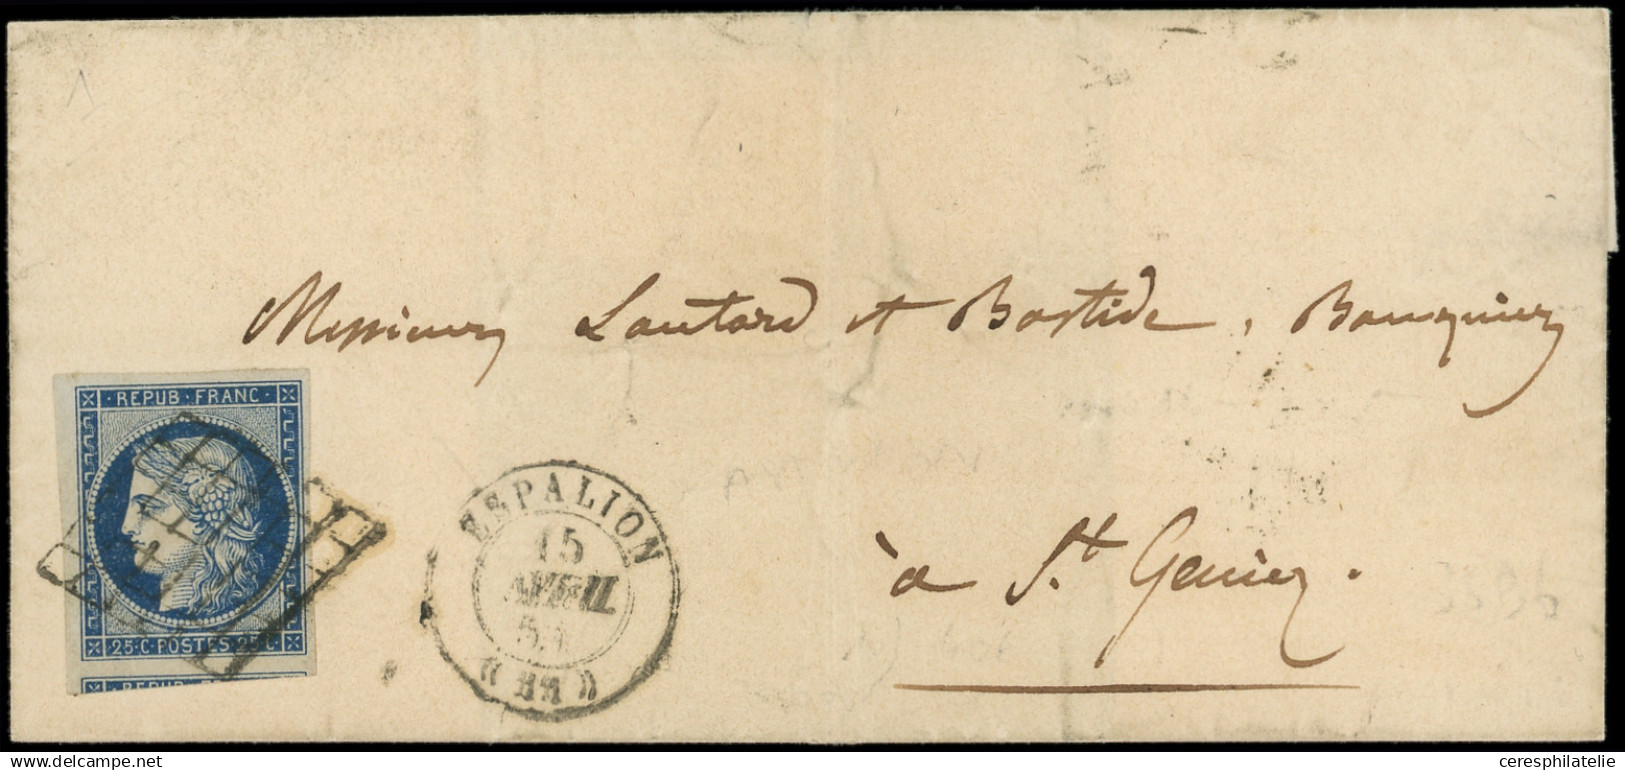 Messieurs Lautard et Bastide, Banquiers
REPUB · FRANC ·
25 · C · POSTES · 25 · C ·
REPUB · FRANC
ESPALION
15
AVRIL
à St. Geniez.
ceresphilatelie